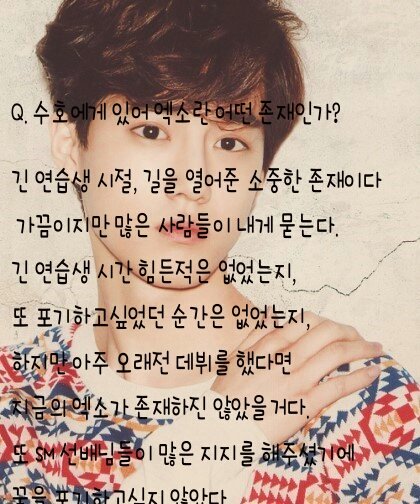 Q. 수호에게 있어 엑소란 어떤 존재인가?
긴 연습생 시절, 길을 열어준 소중한 존재이다
가끔이지만 많은 사람들이 내게 묻는다.
긴 연습생 시간 힘든적은 없었는지,
또 포기하고싶었던 순간은 없었는지,
하지만 아주 오래전 데뷔를 했다면
지금의 엑소가 존재하진 않았을거다.
또 SM 선배님들이 많은 지지를 해주셨기에
꿈을 포기하고싶지 않았다